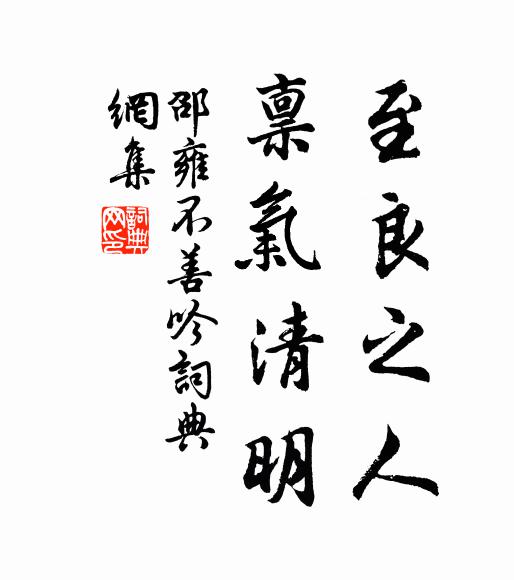 至良之人
稟氣清明
邵雍不善吟詞典
網集
詞典
网印